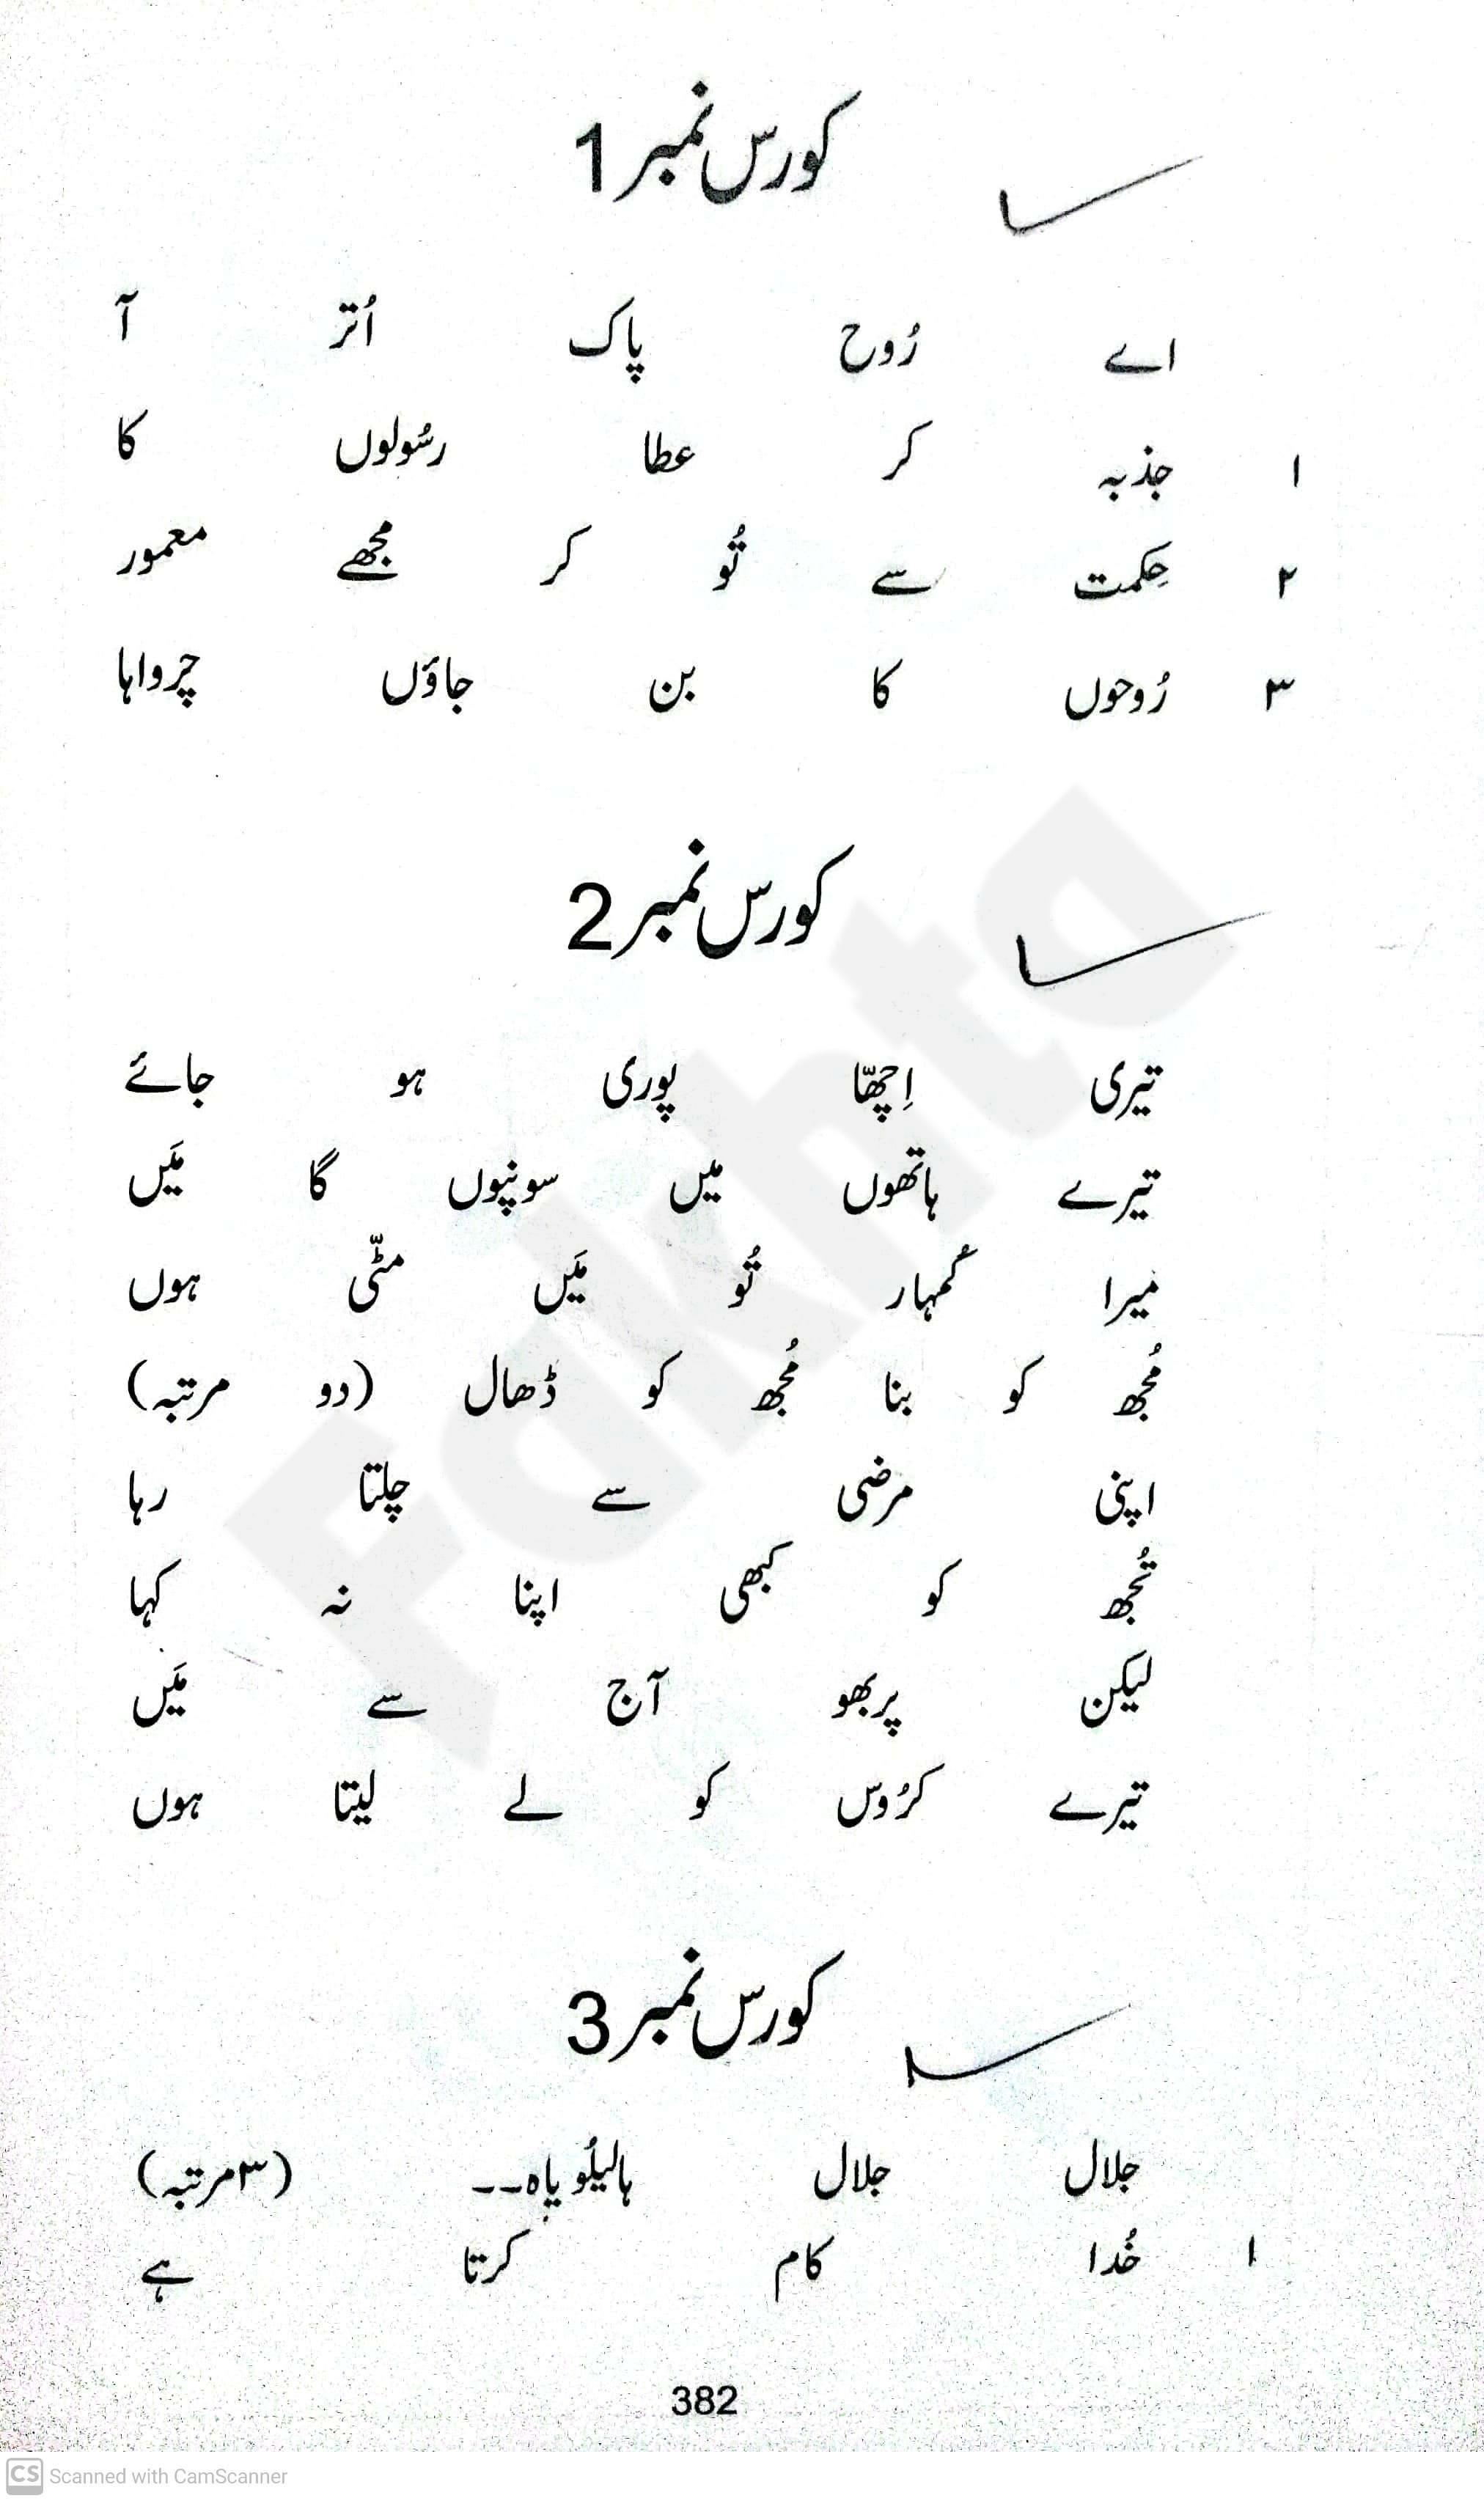 کورس نمبر 1
اے رُوح پاک اُتر آ
۱ جذبہ کر عطا رسُولوں کا
۲ حِکمت سے تُو کر مجھے معمور
۳ رُوحوں کا بن جاؤں چرواہا
کورس نمبر 2
تیری اِچھّا پوری ہو جائے
تیرے ہاتھوں میں سونپوں گا مَیں
میرا کُمہار تُو مَیں مٹّی ہوں
مُجھ کو بنا مُجھ کو ڈھال (دو مرتبہ)
اپنی مرضی سے چلتا رہا
تُجھ کو کبھی اپنا نہ کہا
لیکن پربھو آج سے مَیں
تیرے کرُوس کو لے لیتا ہوں
کورس نمبر 3
جلال جلال ہالیلُویاہ-- (۳مرتبہ)
۱ خُدا کام کرتا ہے
382
Fakhta
CS Scanned with CamScanner